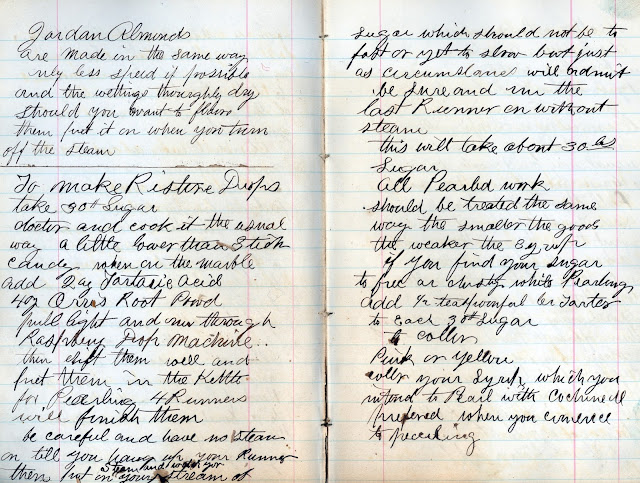 Jordan Almonds
are made in the same way
only less speed if possible
and the wettings thoroughly dry
should you want to flavor
them put it on when you turn
off the steam
To make Ristore Drops
take 30# Sugar
doctor and cook it the usual
way a little lower than Stick
candy when on the marble
add 2 oz Tartaric Acid
4 oz Orris Root Powd
pull light and run through
Raspberry Drop Machine
then sift them well and
put them in the Kettle
for Pearling 4 Runners
will finish them
be careful and have no steam
on till you have up your Runner
then put on your stream of
sugar which should not be to
fast or yet to slow but just
as circumstances will admit
be sure and run the
last Runner on without
steam
this will take about 30 lbs
Sugar
All Pearled work
should be treated the same
way the smaller the goods
the weaker the Syrup
if you find your sugar
to fine or dusty white Pearling
add 1/2 teaspoonful Cr Tarter
to Each 30# Sugar
to collor
Pink or Yellow
collor your Syrup which you
intend to Pearl with Cochineal
prepared when you comence
to pearling